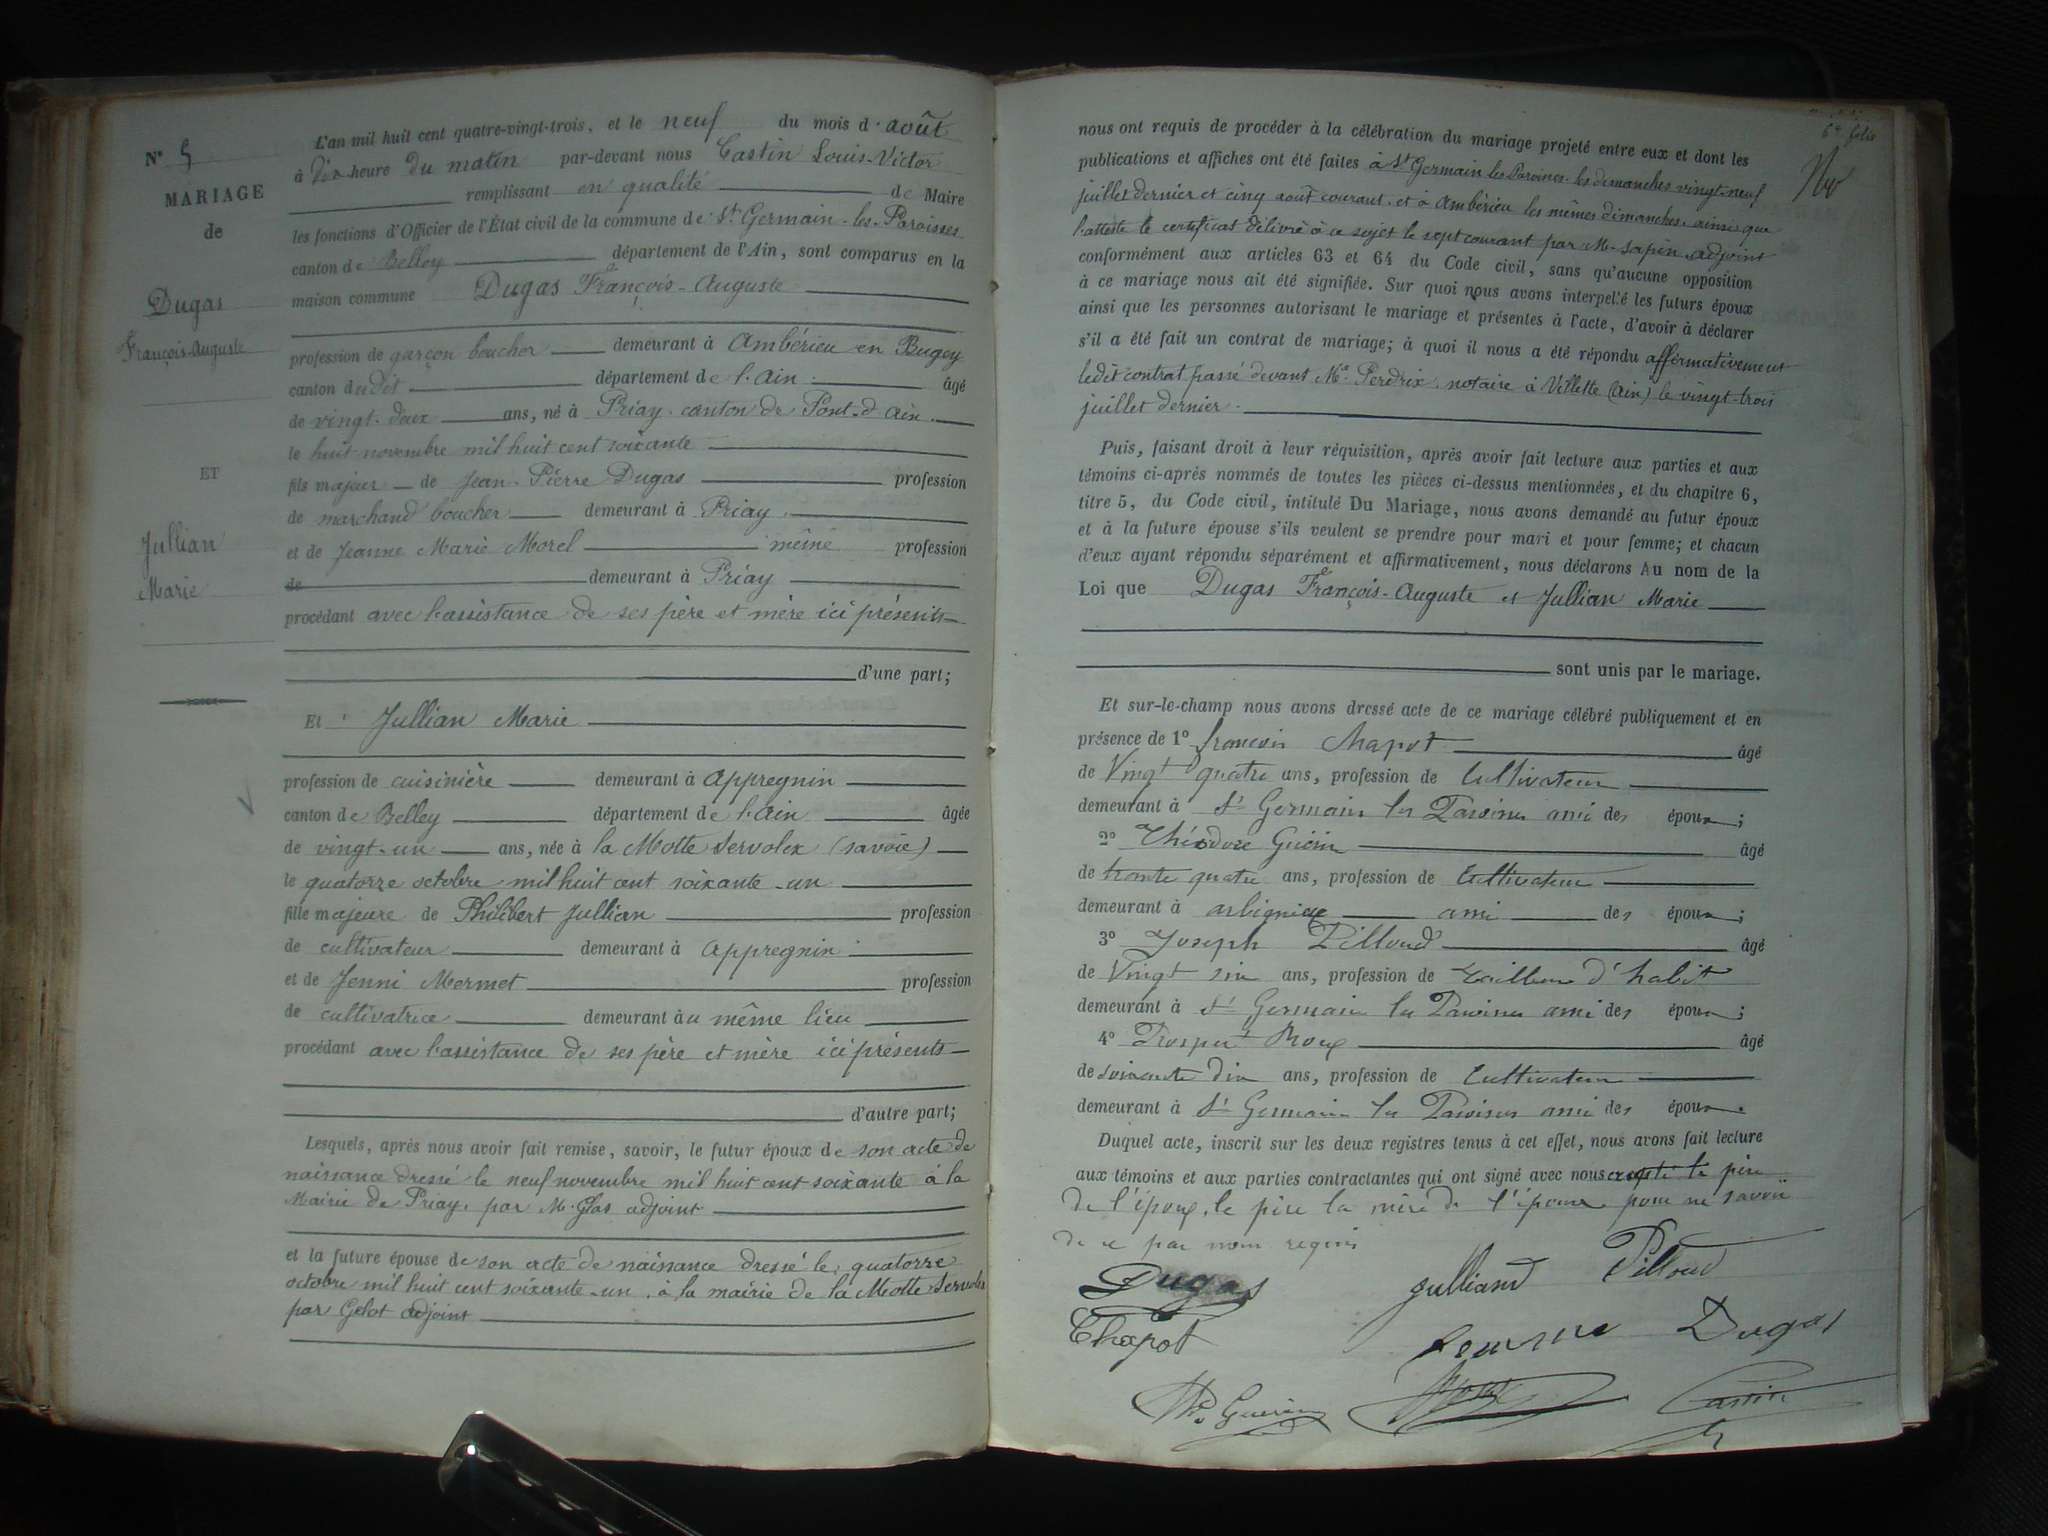 N° 5
MARIAGE
de
Dugas
François-Auguste
ET
Jullian
Marie
L'an mil huit cent quatre-vingt-trois, et le neuf du mois d'août
à dix heure du matin par-devant nous Castin Louis-Victor
remplissant en qualité de Maire
les fonctions d'Officier de l'État civil de la commune de St Germain-les-Paroisses
canton de Belley département de l'Ain, sont comparus en la
maison commune Dugas François-Auguste
profession de garçon boucher demeurant à Ambérieu en Bugey
canton dudit département de l'Ain âgé
de vingt-deux ans, né à Priay canton de Pont-d'Ain
le huit novembre mil huit cent soixante
fils majeur de Jean-Pierre Dugas profession
de marchand boucher demeurant à Priay
et de Jeanne Marie Morel même profession
de demeurant à Priay
procédant avec l'assistance de ses père et mère ici présents
d'une part;
Et Jullian Marie
profession de cuisinière demeurant à Appregnin
canton de Belley département de l'Ain âgée
de vingt-un ans, née à la Motte Servolex (Savoie)
le quatorze octobre mil huit cent soixante-un
fille majeure de Philibert Jullian profession
de cultivateur demeurant à Appregnin
et de Jenni Mermet profession
de cultivatrice demeurant au même lieu
procédant avec l'assistance de ses père et mère ici présents
d'autre part;
Lesquels, après nous avoir fait remise, savoir, le futur époux de son acte de
naissance dressé le neuf novembre mil huit cent soixante à la
Mairie de Priay, par M. Glas adjoint
et la future épouse de son acte de naissance dressé le quatorze
octobre mil huit cent soixante-un, à la mairie de la Motte-Servolex
par Gelot adjoint
6e folio
nous ont requis de procéder à la célébration du mariage projeté entre eux et dont les
publications et affiches ont été faites à St Germain les Paroisses les dimanches vingt-neuf
juillet dernier et cinq août courant, et à Ambérieu les mêmes dimanches, ainsi que
l'atteste le certificat délivré à ce sujet le sept courant par M. Sapin adjoint
conformément aux articles 63 et 64 du Code civil, sans qu'aucune opposition
à ce mariage nous ait été signifiée. Sur quoi nous avons interpellé les futurs époux
ainsi que les personnes autorisant le mariage et présentes à l'acte, d'avoir à déclarer
s'il a été fait un contrat de mariage; à quoi il nous a été répondu affirmativement
ledit contrat passé devant Me Perdrix, notaire à Villette (Ain) le vingt-trois
juillet dernier.
Puis, faisant droit à leur réquisition, après avoir fait lecture aux parties et aux
témoins ci-après nommés de toutes les pièces ci-dessus mentionnées, et du chapitre 6,
titre 5, du Code civil, intitulé Du Mariage, nous avons demandé au futur époux
et à la future épouse s'ils veulent se prendre pour mari et pour femme; et chacun
d'eux ayant répondu séparément et affirmativement, nous déclarons Au nom de la
Loi que Dugas François-Auguste et Jullian Marie
sont unis par le mariage.
Et sur-le-champ nous avons dressé acte de ce mariage célébré publiquement et en
présence de 1° françois Chapot âgé
de Vingt quatre ans, profession de Cultivateur
demeurant à St Germain les Paroisses ami des époux;
2° Théodore Guérin âgé
de trente quatre ans, profession de Cultivateur
demeurant à arbignieu ami des époux;
3° Joseph Pilloud âgé
de Vingt six ans, profession de tailleur d'habit
demeurant à St Germain les Paroisses ami des époux;
4° Prosper Roux âgé
de soixante dix ans, profession de Cultivateur
demeurant à St Germain les Paroisses ami des époux.
Duquel acte, inscrit sur les deux registres tenus à cet effet, nous avons fait lecture
aux témoins et aux parties contractantes qui ont signé avec nous excepté le père
de l'époux, le père la mère de l'épouse pour ne savoir
de ce par nous requis
Dugas Julliand Pilloud
Chapot femme Dugas
Th. Guérin Roux Castin